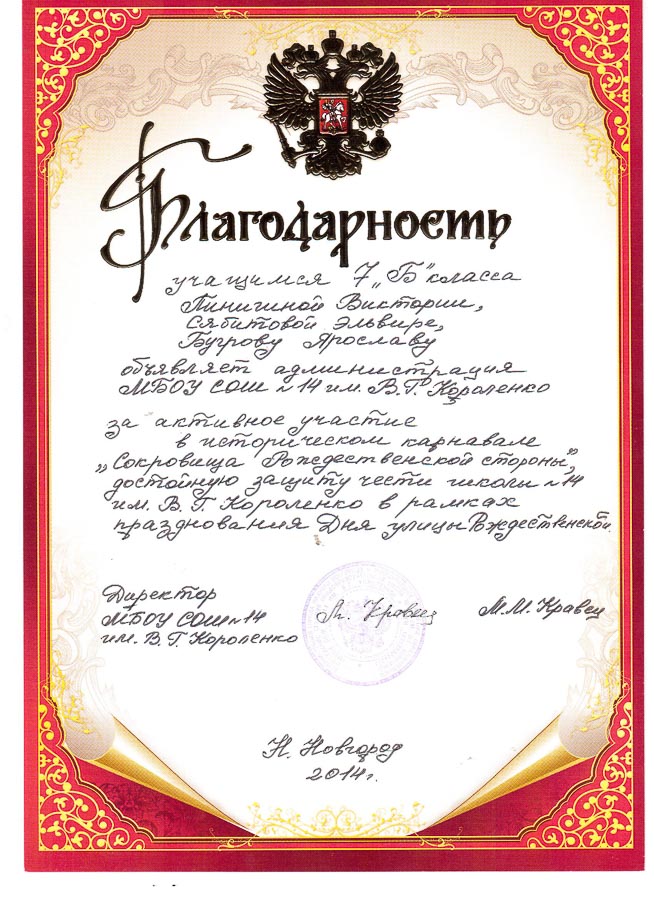 Благодарность
учащимся 7 „Б" класса
Пинигиной Виктории,
Сябитовой Эльвире,
Бугрову Ярославу
объявляет администрация
МБОУ СОШ №14 им. В.Г. Короленко
за активное участие
в историческом карнавале
„Сокровища Рождественской стороны",
достойную защиту чести школы №14
им. В.Г. Короленко в рамках
празднования Дня улицы Рождественской.
Директор
МБОУ СОШ №14
им. В.Г. Короленко
М. Кравец
М.М. Кравец
Н. Новгород
2014г.